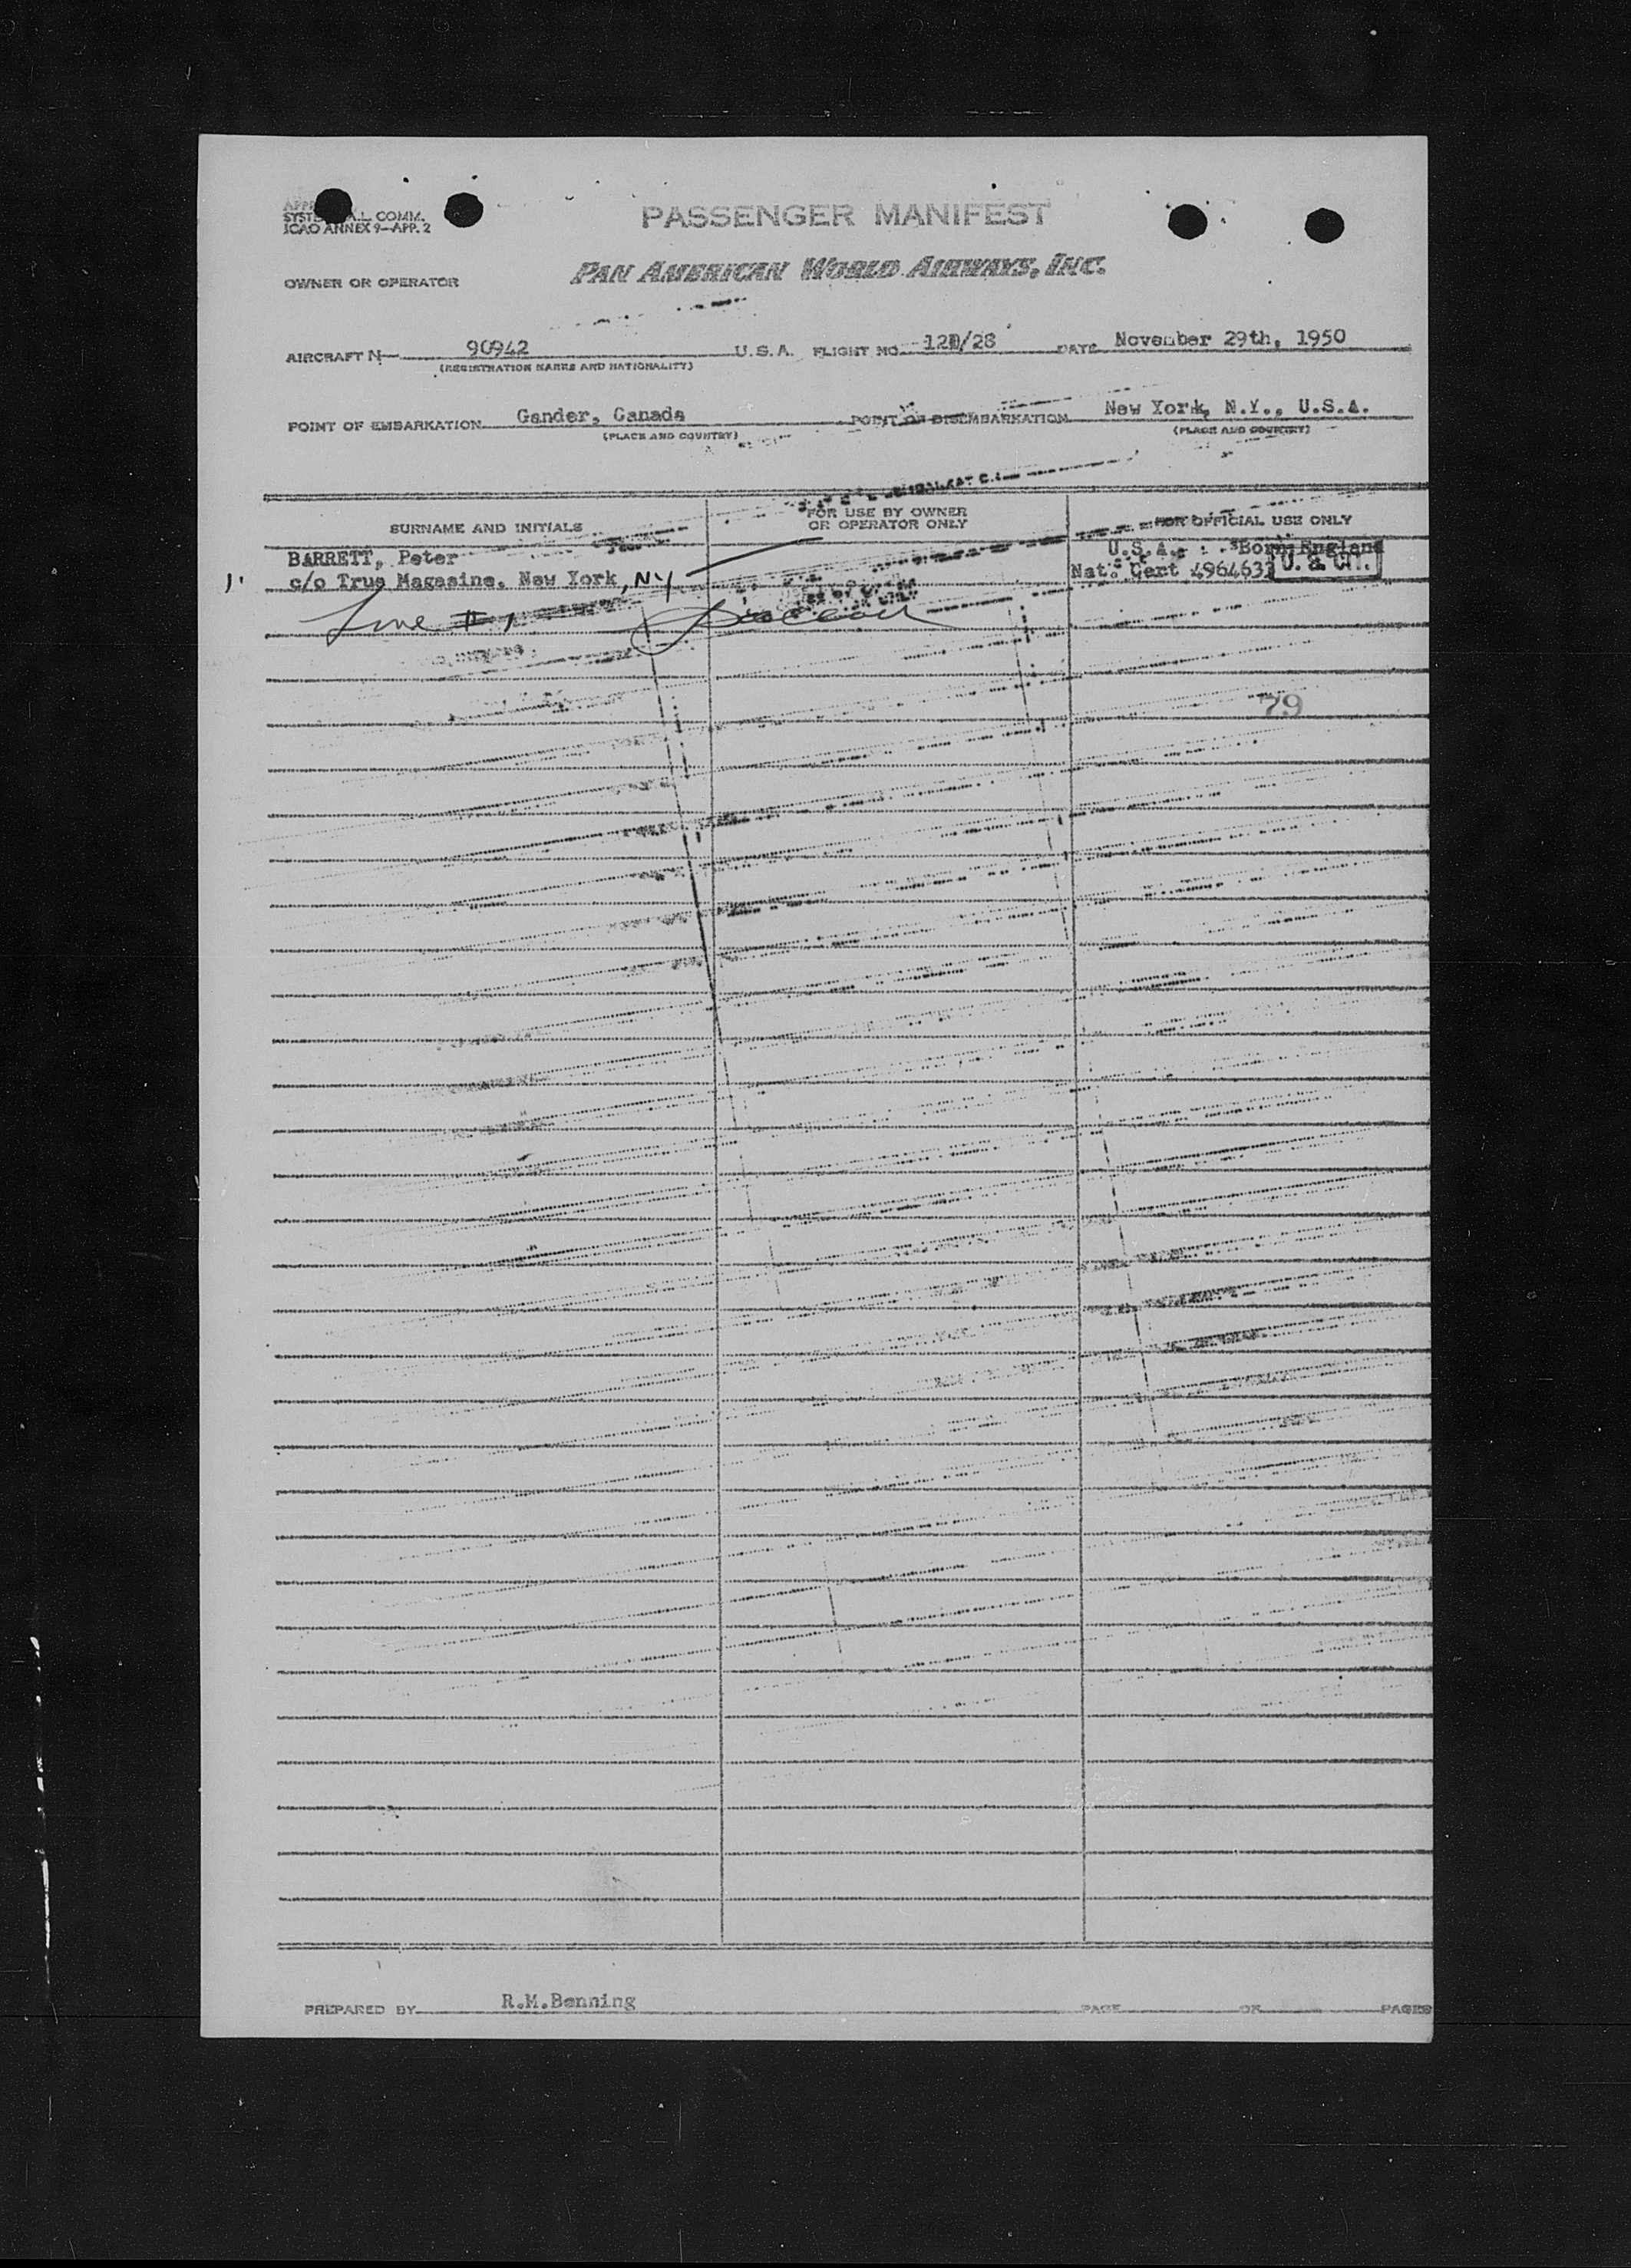 SYST COMM.
ICAO ANNEX 9—APP. 2
PASSENGER MANIFEST
OWNER OR OPERATOR PAN AMERICAN WORLD AIRWAYS, INC.
AIRCRAFT N— 90942 U.S.A. FLIGHT NO. /28 DATE November 29th, 1950
(REGISTRATION MARKS AND NATIONALITY)
POINT OF EMBARKATION Gander, Canada POINT OF DISEMBARKATION New York, N.Y., U.S.A.
(PLACE AND COUNTRY) (PLACE AND COUNTRY)
SURNAME AND INITIALS FOR USE BY OWNER OR OPERATOR ONLY FOR OFFICIAL USE ONLY
BARRETT, Peter U.S.A. Born England
1. c/o True Magazine, New York, NY Nat. Cert 4964633 U. S. CIT.
Line # 1
79
PREPARED BY R.M.Benning PAGE OF PAGES